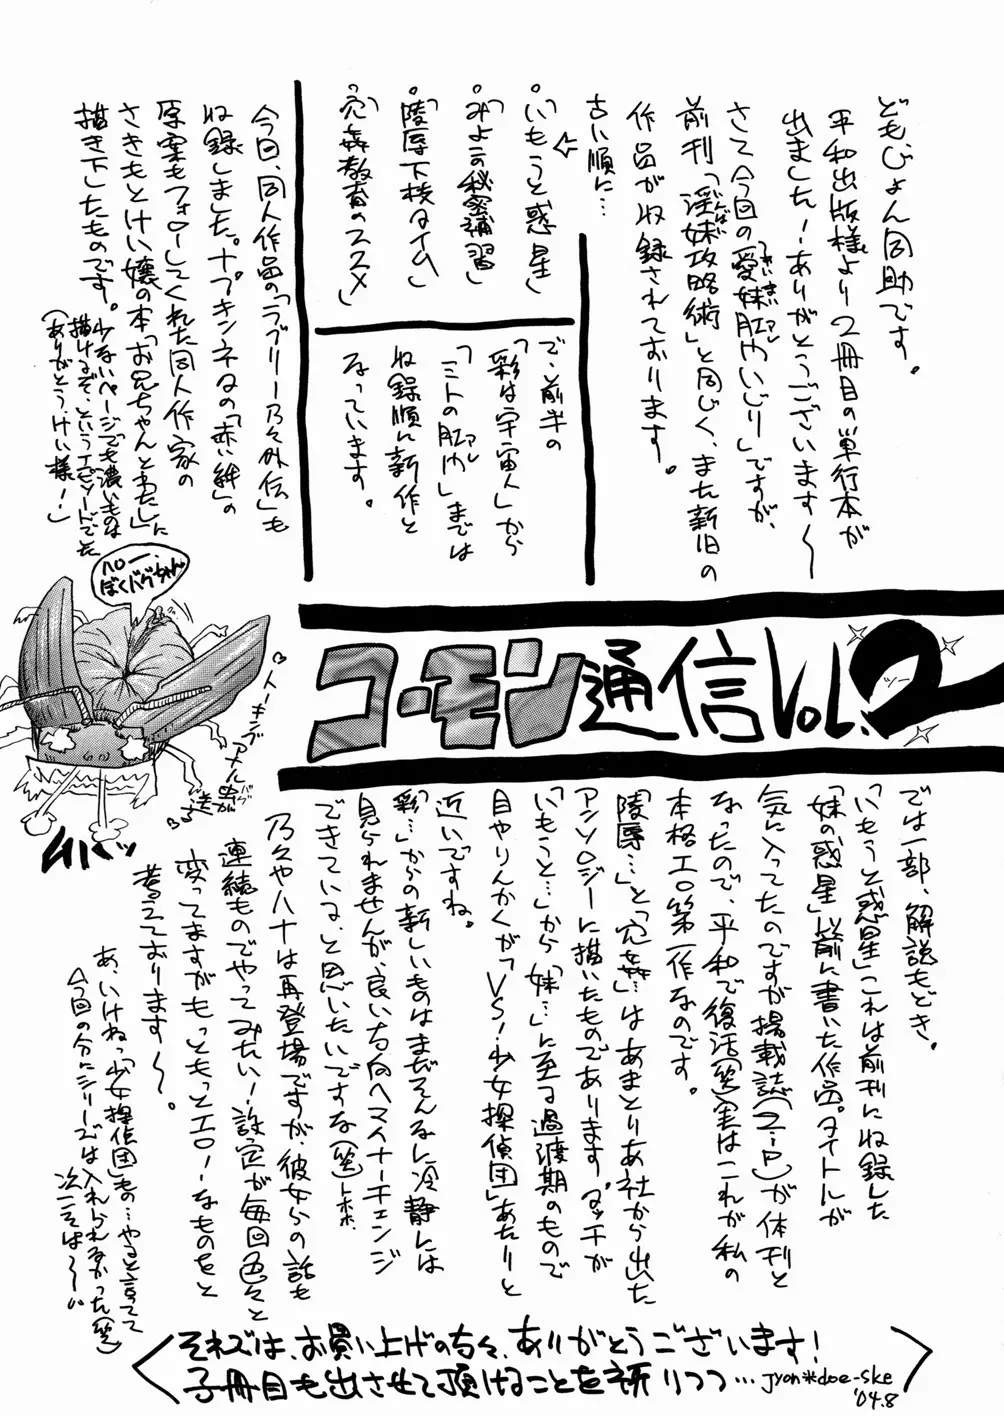 ども、じょん同助です。
平和出版様より2冊目の単行本が
出ました!ありがとうございます〜
さて今回の「愛妹肛内いじり」ですが、
前刊「淫妹攻略術」と同じく、また新旧の
作品が収録されております。
古い順に…
・「いもうと惑星」
・「みよこの秘密補習」
・「陵辱下校タイム」
・「穴姦教育のススメ」
で、前半の
「彩は宇宙人」から
「ミトの肛内」までは
収録順に新作と
なっています。
今回、同人作品の「ラブリー乃々外伝」も
収録しました。ナプキンネタの「赤い絆」の
原案もフォローしてくれた同人作家の
さきもとけい嬢の本「お兄ちゃんとわたし」に
描き下したものです。
少ないページでも濃いものは
描けるぞ、というエピソードでした
(ありがとう、けい様!)
ハロー、
ぼくバグちゃん
トーキング
アナル虫が
送る
ムバッ
コーモン通信Vol.2
では一部、解説もどき。
「いもうと惑星」これは前刊に収録した
「妹の惑星」以前に書いた作品。タイトルが
気に入ってたのですが掲載誌(ズーP)が休刊と
なったので、平和で復活(笑)実はこれが私の
本格エロ第一作なのです。
「陵辱…」と「穴姦…」はあまとりあ社から出た
アンソロジーに描いたものであります。タッチが
「いもうと…」から「妹…」に至る過渡期のもので
目やりんかくが「VS!少女探偵団」あたりと
近いですね。
「彩…」からの新しいものはまだそんなに冷静には
見られませんが、良い方向へマイナーチェンジ
できている、と思いたいですな(笑)ホホホ
乃々や八十は再登場ですが、彼女らの話も
連続ものでやってみたい!設定が毎回色々と
変ってますがもっともっとエロ!なものをと
考えております〜。
あ、いけねっ「少女探偵団」もの…やると言ってて
今回の分にシリーズは入れられなかった(笑)
次こそは〜
それでは、お買い上げの方々、ありがとうございます!
3冊目も出させて頂けることを祈りつつ…jyon*doe-ske
'04.8